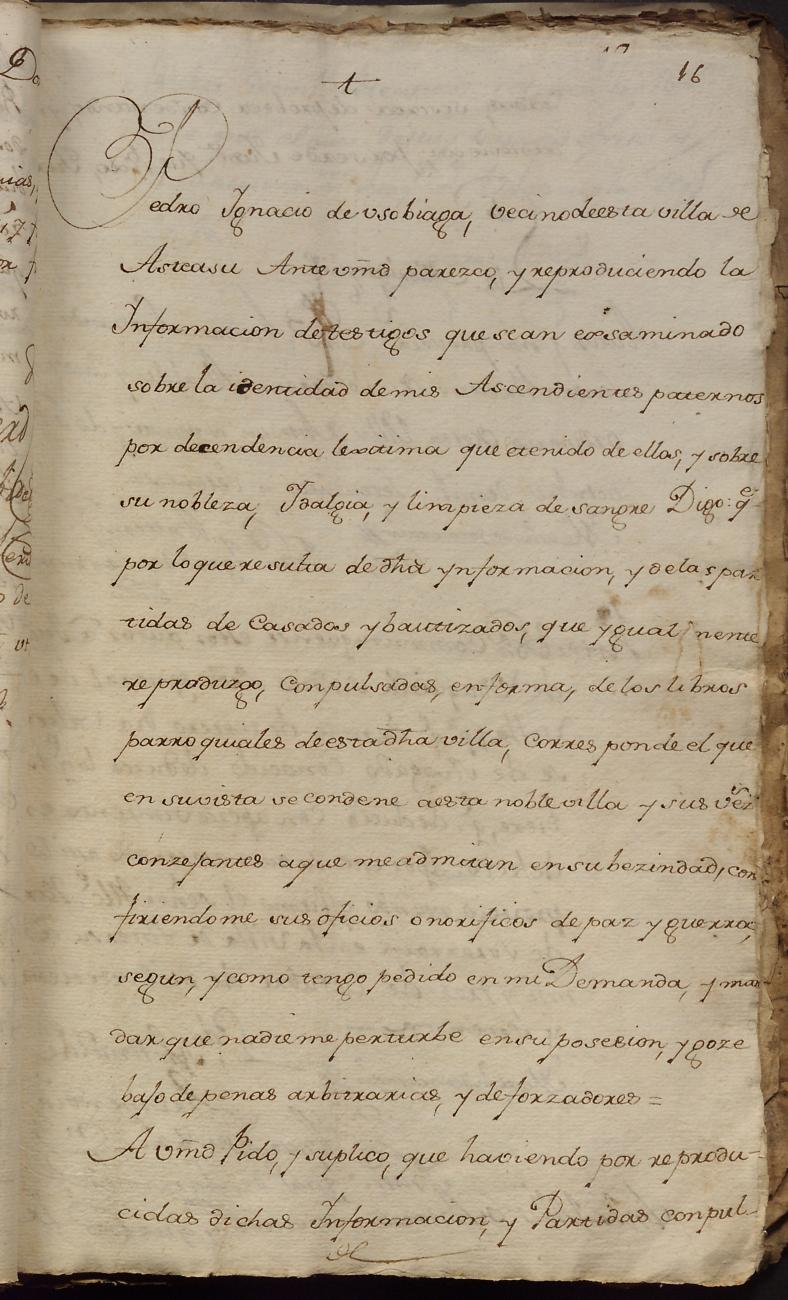 16
Pedro Ygnacio de vsobiaga, vecino de esta villa de
Asteasu Ante vm̃d parezco, y reproduciendo la
Informacion de testigos que sean exsaminado
sobre la identidad de mis Ascendientes paternos
por decendencia lexitima que etenido de ellos, y sobre
su nobleza, Idalgia, y limpieza de sangre Digo: q̃
por lo que resulta de dh̃a ynformacion, y de las par
tidas de Casados y bautizados, que ygualmente
reproduzgo, Conpulsadas, en forma, de los libros
parroquiales de esta dh̃a villa, Corresponde el que
en su vista se condene aesta noble villa y sus vez̃
conzejantes a que me admitan en su bezindad, con
firiendome sus oficios onorificos de paz y guerra,
segun, y como tengo pedido en mi Demanda, y man
dar que nadie me perturbe en su posesion, y goze
bajo de penas arbitrarias, y de forzadores =
A vm̃d Pido, y suplico, que haviendo por reprodu-
cidas dichas Informacion, y Partidas conpul-